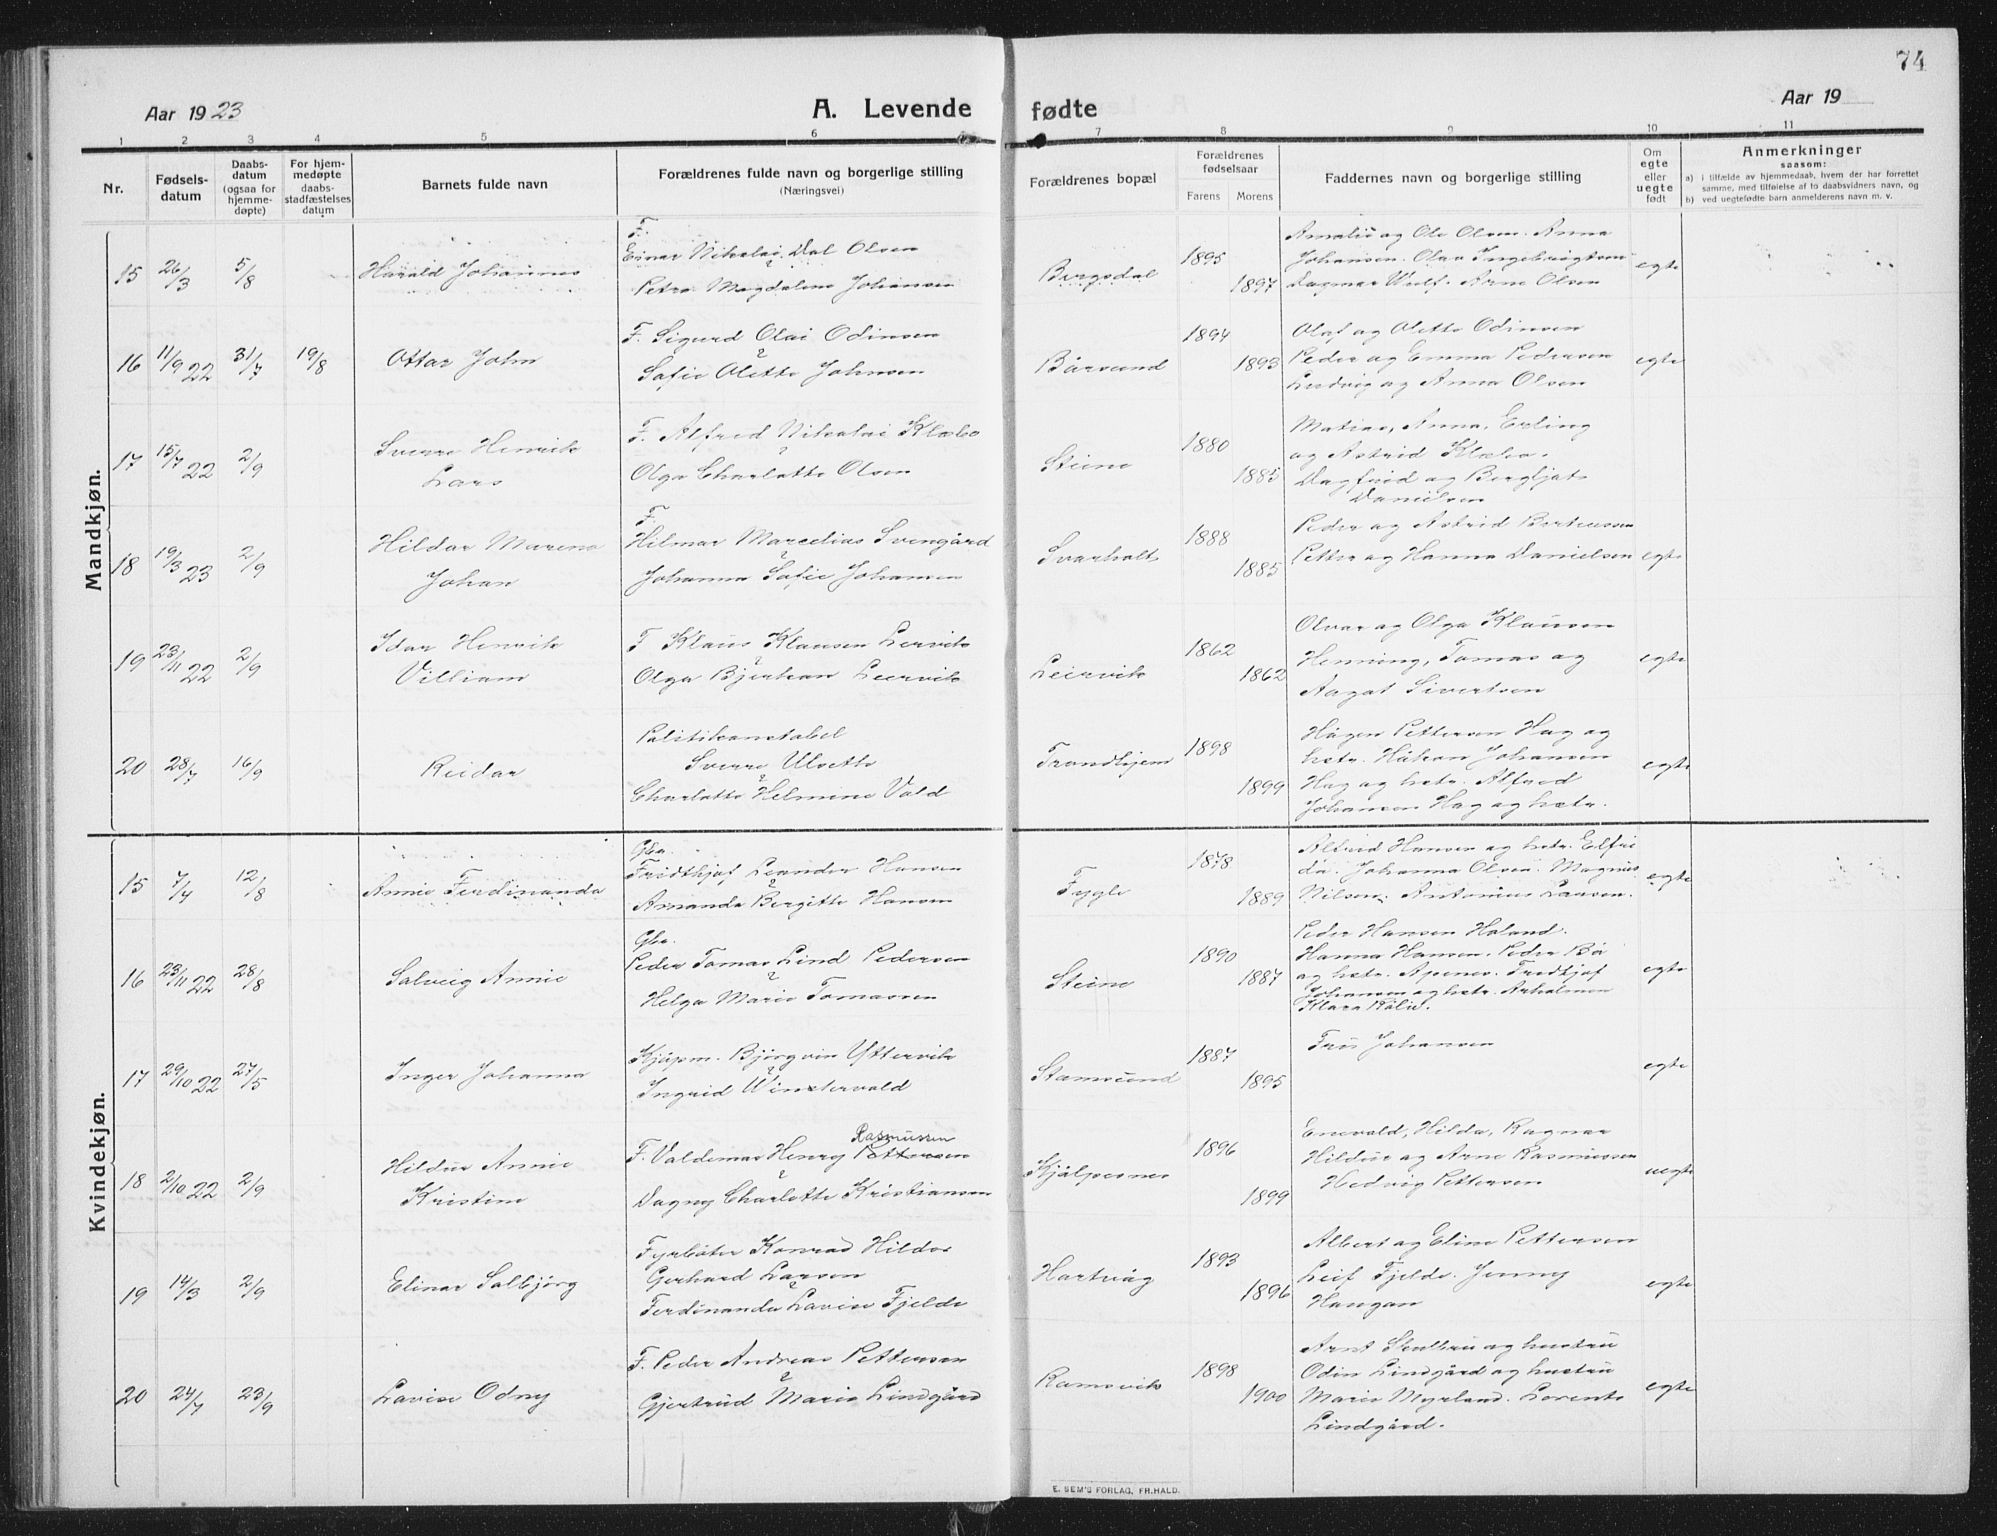 74
Aar 1923
A. Levende
fødte
Aar 19
1 2 3 4 5 6 7 8 9 10 11
Nr.
Fødsels-
datum
Daabs-
datum
(ogsaa for
hjemme-
døpte)
For hjem-
medøpte
daabs-
stadfæstelses
datum
Barnets fulde navn
Forældrenes fulde navn og borgerlige stilling
(Næringsvei)
Forældrenes bopæl
Forældrenes
fødselsaar
Farens Morens
Faddernes navn og borgerlige stilling
Om
egte
eller
uegte
født
Anmerkninger
saasom:
a) i tilfælde av hjemmedaab, hvem der har forrettet
samme, med tilføielse af to daabsvidners navn, og
b) ved uegtefødte barn anmelderens navn m. v.
Mandkjøn.
15 26/3 5/8 Harald Johannes
F.
Einar Nikolai Dal Olsen
Petra Magdalene Johansen
Borgsdal 1895 1897
Amalie og Ole Olsen. Anna
Johansen. Olav Ingebrigtsen
Dagmar Wulf. Arne Olsen
egte
16 11/9 22 31/7 19/8 Ottar John
F. Sigurd Olai Odinsen
Sofie Olette Johnsen
Børsund 1894 1893
Olaf og Olette Odinsen
Peder og Emma Pedersen
Ludvig og Anna Olsen
egte
17 15/7 22 2/9 Sverre Henrik
Lars
F. Alfred Nikolai Klæbo
Olga Charlotte Olsen
Steine 1880 1885
Matias, Anna, Erling
og Astrid Klæbo.
Dagfrid og Bergljot
Danielsen
18 19/3 23 2/9 Hildor Mareno
Johan
F.
Hilmar Marcelius Svengård
Johanna Sofie Johansen
Svarholt 1888 1885
Peder og Astrid Berteussen
Petter og Hanna Danielsen
egte
19 23/11 22 2/9 Idar Henrik
Villiam
F Klaus Klausen Lervik
Olga Bjerkan Leervik
Leirvik 1862 1862
Olvar og Olga Klausen
Henning, Tomas og
Aagot Sivertsen
egte
20 28/7 16/9 Reidar
Politikonstabel
Sverre Ulsette
Charlotte Helmine Vold
Trondhjem 1898 1899
Hågen Pettersen Hag og
hstr. Håkon Johansen
Hag og hstr. Alfred
Johansen Hag og hstr.
egte
Kvindekjøn.
15 7/4 12/8 Annie Ferdinanda
Gbr.
Fridthjof Leander Hansen
Amanda Bergitte Hansen
Fygle 1878 1889
Altrid Hansen og hstr. Elfri
da. Johanna Olsen. Magnus
Nilsen. Antonius Larsen.
egte
16 23/11 22 28/8 Solveig Annie
Gbr.
Peder Tomas Lind Pedersen
Helga Marie Tomassen
Steine 1890 1887
Peder Hansen Holand.
Hanna Hansen. Peder Bø
og hstr. Apenes. Fredthjof
Johansen og hstr. Arholmen
Klara Kålie.
egte
17 29/10 22 27/5 Inger Johanna
Kjøpm. Bjørgvin Yttervik
Ingrid Winstervold
Stamsund 1887 1895
Frits Johansen
egte
18 2/10 22 2/9 Hildur Annie
Kristine
Rasmussen
F. Valdemar Henry Pettersen
Dagny Charlotte Kristiansen
Kjølpesnes 1896 1899
Enevald, Hilda, Ragnar
Hildur og Arne Rasmussen
Hedvig Pettersen
uegte
19 14/3 2/9 Elinar Solbjørg
Fyrbøter Konrad Hildor
Gerhard Larsen
Ferdinanda Lovise Fjelde
Hartvåg 1893 1896
Albert og Eline Pettersen
Leif Fjelde. Jenny
Haugan
egte
20 24/7 23/9 Lovise Odny
F. Peder Andreas Pettersen
Gjertrud Marie Lindgård
Ramsvik 1898 1900
Arnt Skulbru og hustru
Odin Lindgård og hustru
Marie Myrland. Lorents
Lindgård.
egte
E. SEM'S FORLAG, FR.HALD.